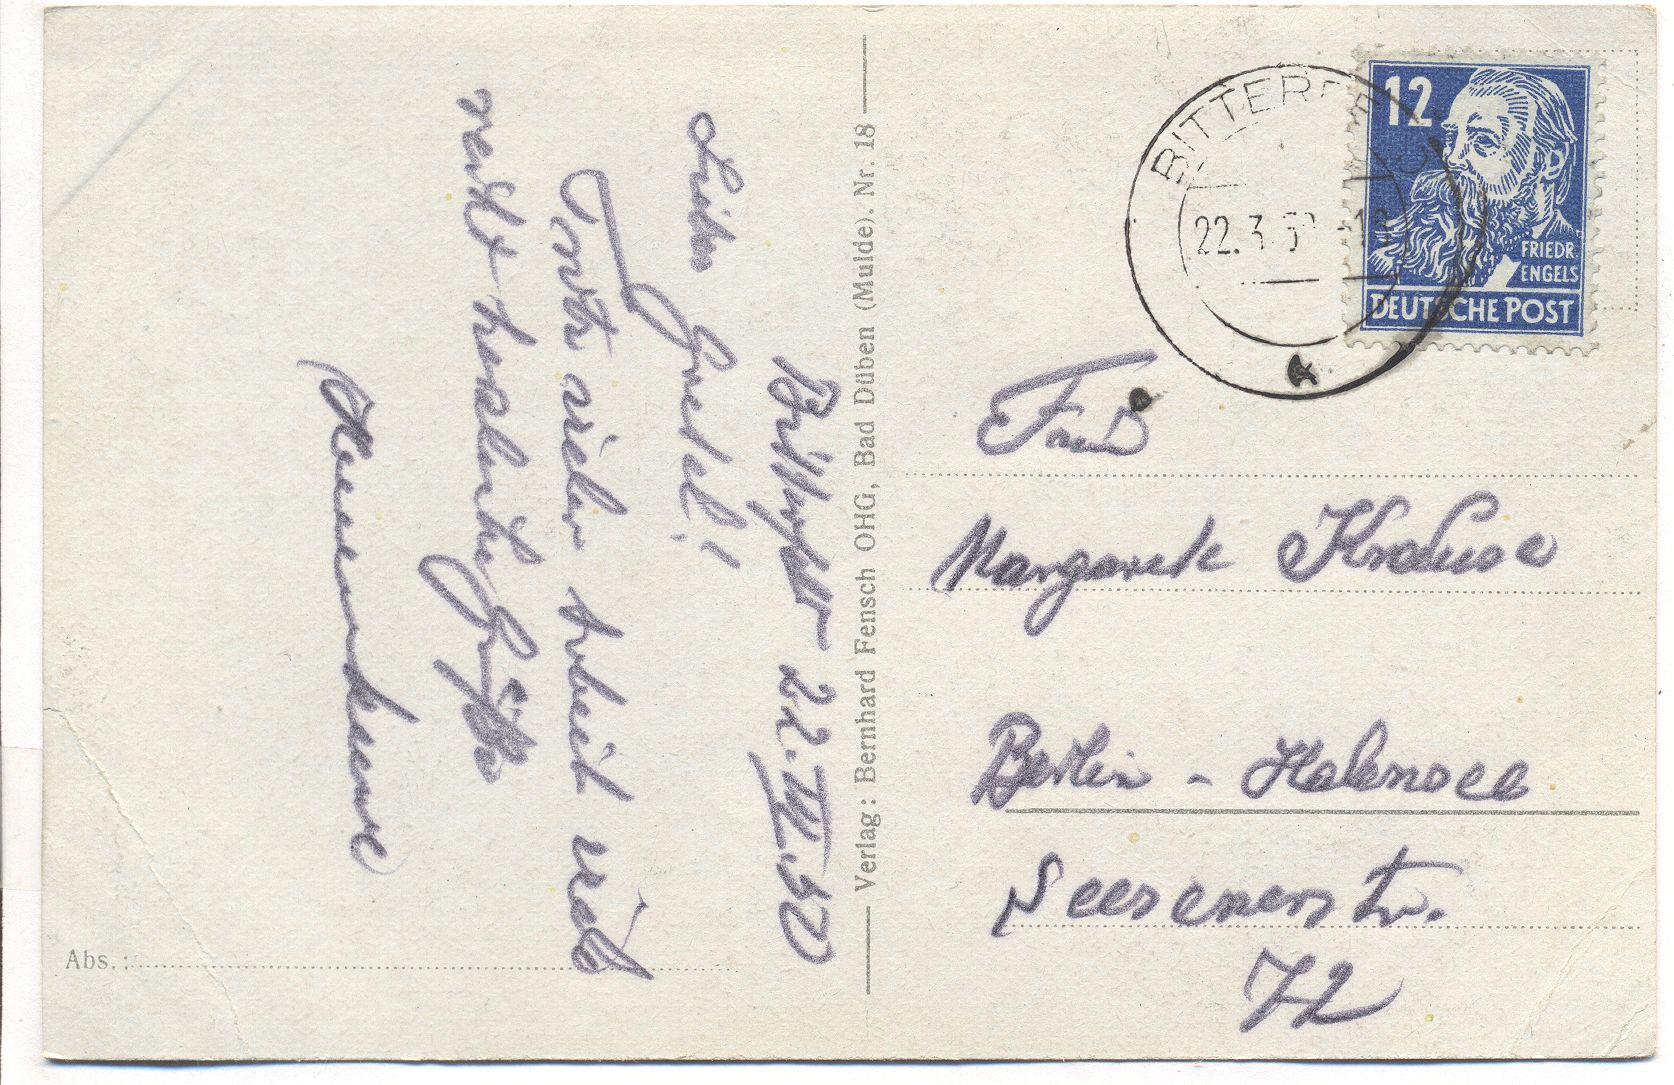 Bitterfeld 22.III.50
Liebe Gretel!
Trotz vieler Arbeit viele
recht herzliche Grüße
Verlag: Bernhard Fensch OHG, Bad Düben (Mulde). Nr. 18
Abs.:
BITTERFELD
22.3.50
12
FRIEDR.
ENGELS
DEUTSCHE POST
Frau
Margarete Krause
Berlin - Halensee
Seesenerstr.
72